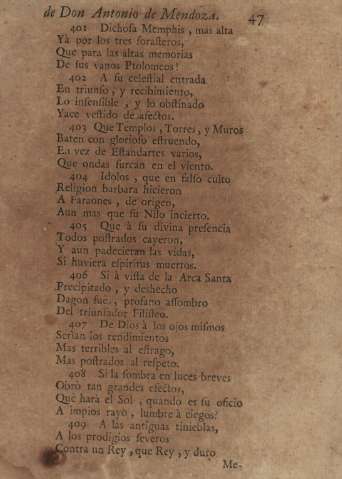 de Don Antonio de Mendoza. 47
401 Dichosa Memphis, mas alta
Yà por los tres forasteros,
Que para las altas memorias
De sus vanos Ptolomeos!
402 A su celestial entrada
En triunfo, y recibimiento,
Lo insensible, y lo obstinado
Yace vestido de afectos.
403 Que Templos, Torres, y Muros
Baten con glorioso estruendo,
En vez de Estandartes varios,
Que ondas surcan en el viento.
404 Idolos, que en falso culto
Religion barbara hicieron
A Faraones, de origen,
Aun mas que su Nilo incierto.
405 Que à su divina presencia
Todos postrados cayeron,
Y aun padecieran las vidas,
Si huviera espiritus muertos.
406 Si à vista de la Arca Santa
Precipitado, y deshecho
Dagon fue, profano assombro
Del triunfador Filisteo.
407 De Dios à los ojos mismos
Serian los rendimientos
Mas terribles al estrago,
Mas postrados al respeto.
408 Si la sombra en luces breves
Obrò tan grandes efectos,
Què harà el Sol, quando es su oficio
A impios rayo, lumbre à ciegos?
409 A las antiguas tinieblas,
A los prodigios severos
Contra un Rey, que Rey, y duro
Me-